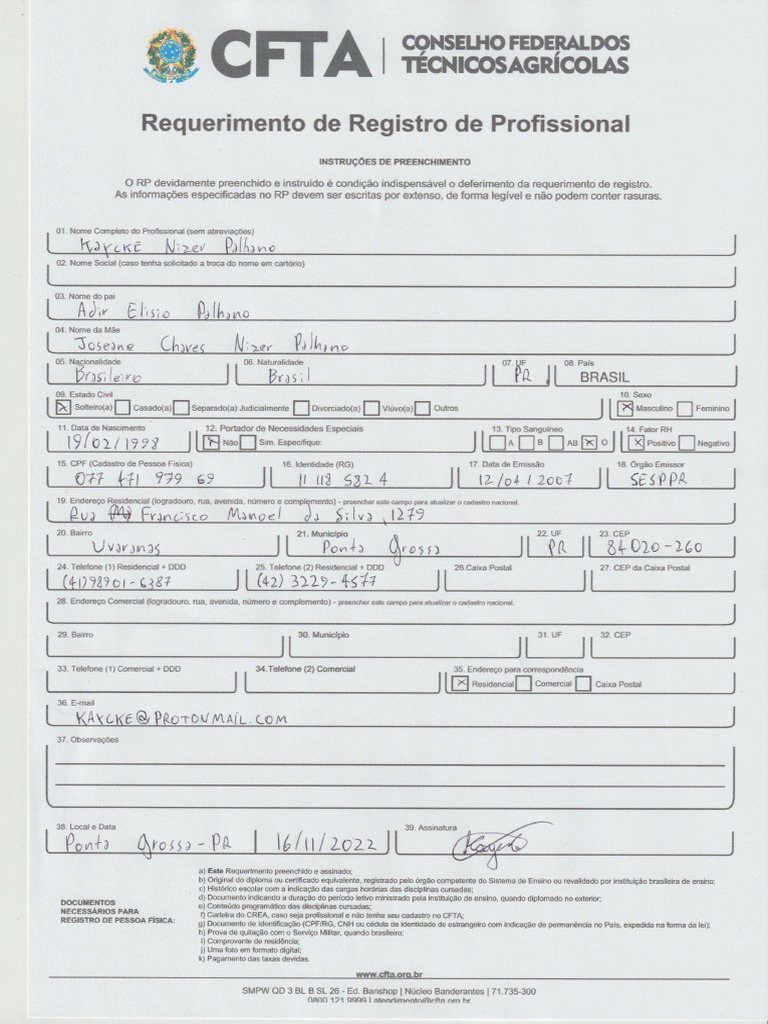 CFTA | CONSELHO FEDERAL DOS
TÉCNICOS AGRÍCOLAS
Requerimento de Registro de Profissional
INSTRUÇÕES DE PREENCHIMENTO
O RP devidamente preenchido e instruído é condição indispensável o deferimento da requerimento de registro.
As informações especificadas no RP devem ser escritas por extenso, de forma legível e não podem conter rasuras.
01. Nome Completo do Profissional (sem abreviações)
Kaycke Nizer Palhano
02. Nome Social (caso tenha solicitado a troca do nome em cartório)
03. Nome do pai
Adir Elisio Palhano
04. Nome da Mãe
Joseane Chaves Nizer Palhano
05. Nacionalidade 06. Naturalidade 07. UF 08. País
Brasileiro Brasil PR BRASIL
09. Estado Civil 10. Sexo
X Solteiro(a) Casado(a) Separado(a) Judicialmente Divorciado(a) Viúvo(a) Outros X Masculino Feminino
11. Data de Nascimento 12. Portador de Necessidades Especiais 13. Tipo Sanguíneo 14. Fator RH
19/02/1998 X Não Sim. Especifique: A B AB X O X Positivo Negativo
15. CPF (Cadastro de Pessoa Física) 16. Identidade (RG) 17. Data de Emissão 18. Órgão Emissor
077 471 979 69 11 118 582 4 12/04/2007 SESPPR
19. Endereço Residencial (logradouro, rua, avenida, número e complemento) - preencher este campo para atualizar o cadastro nacional.
Rua Francisco Manoel da Silva, 1279
20. Bairro 21. Município 22. UF 23. CEP
Uvaranas Ponta Grossa PR 84020-260
24. Telefone (1) Residencial + DDD 25. Telefone (2) Residencial + DDD 26.Caixa Postal 27. CEP da Caixa Postal
(41)98901-6387 (42) 3229-4577
28. Endereço Comercial (logradouro, rua, avenida, número e complemento) - preencher este campo para atualizar o cadastro nacional.
29. Bairro 30. Município 31. UF 32. CEP
33. Telefone (1) Comercial + DDD 34.Telefone (2) Comercial 35. Endereço para correspondência
X Residencial Comercial Caixa Postal
36. E-mail
KAYCKE@PROTONMAIL.COM
37. Observações
38. Local e Data 39. Assinatura
Ponta Grossa-PR | 16/11/2022 Kaycke
a) Este Requerimento preenchido e assinado;
b) Original do diploma ou certificado equivalente, registrado pelo órgão competente do Sistema de Ensino ou revalidado por instituição brasileira de ensino;
c) Histórico escolar com a indicação das cargas horárias das disciplinas cursadas;
d) Documento indicando a duração do período letivo ministrado pela instituição de ensino, quando diplomado no exterior;
e) Conteúdo programático das disciplinas cursadas;
f) Carteira do CREA, caso seja profissional e não tenha seu cadastro no CFTA;
g) Documento de Identificação (CPF/RG, CNH ou cédula de identidade de estrangeiro com indicação de permanência no País, expedida na forma da lei);
h) Prova de quitação com o Serviço Militar, quando brasileiro;
i) Comprovante de residência;
j) Uma foto em formato digital;
k) Pagamento das taxas devidas.
DOCUMENTOS
NECESSÁRIOS PARA
REGISTRO DE PESSOA FÍSICA:
www.cfta.org.br
SMPW QD 3 BL B SL 26 - Ed. Banshop | Núcleo Banderantes | 71.735-300
0800 121 9999 | atendimento@cfta.org.br